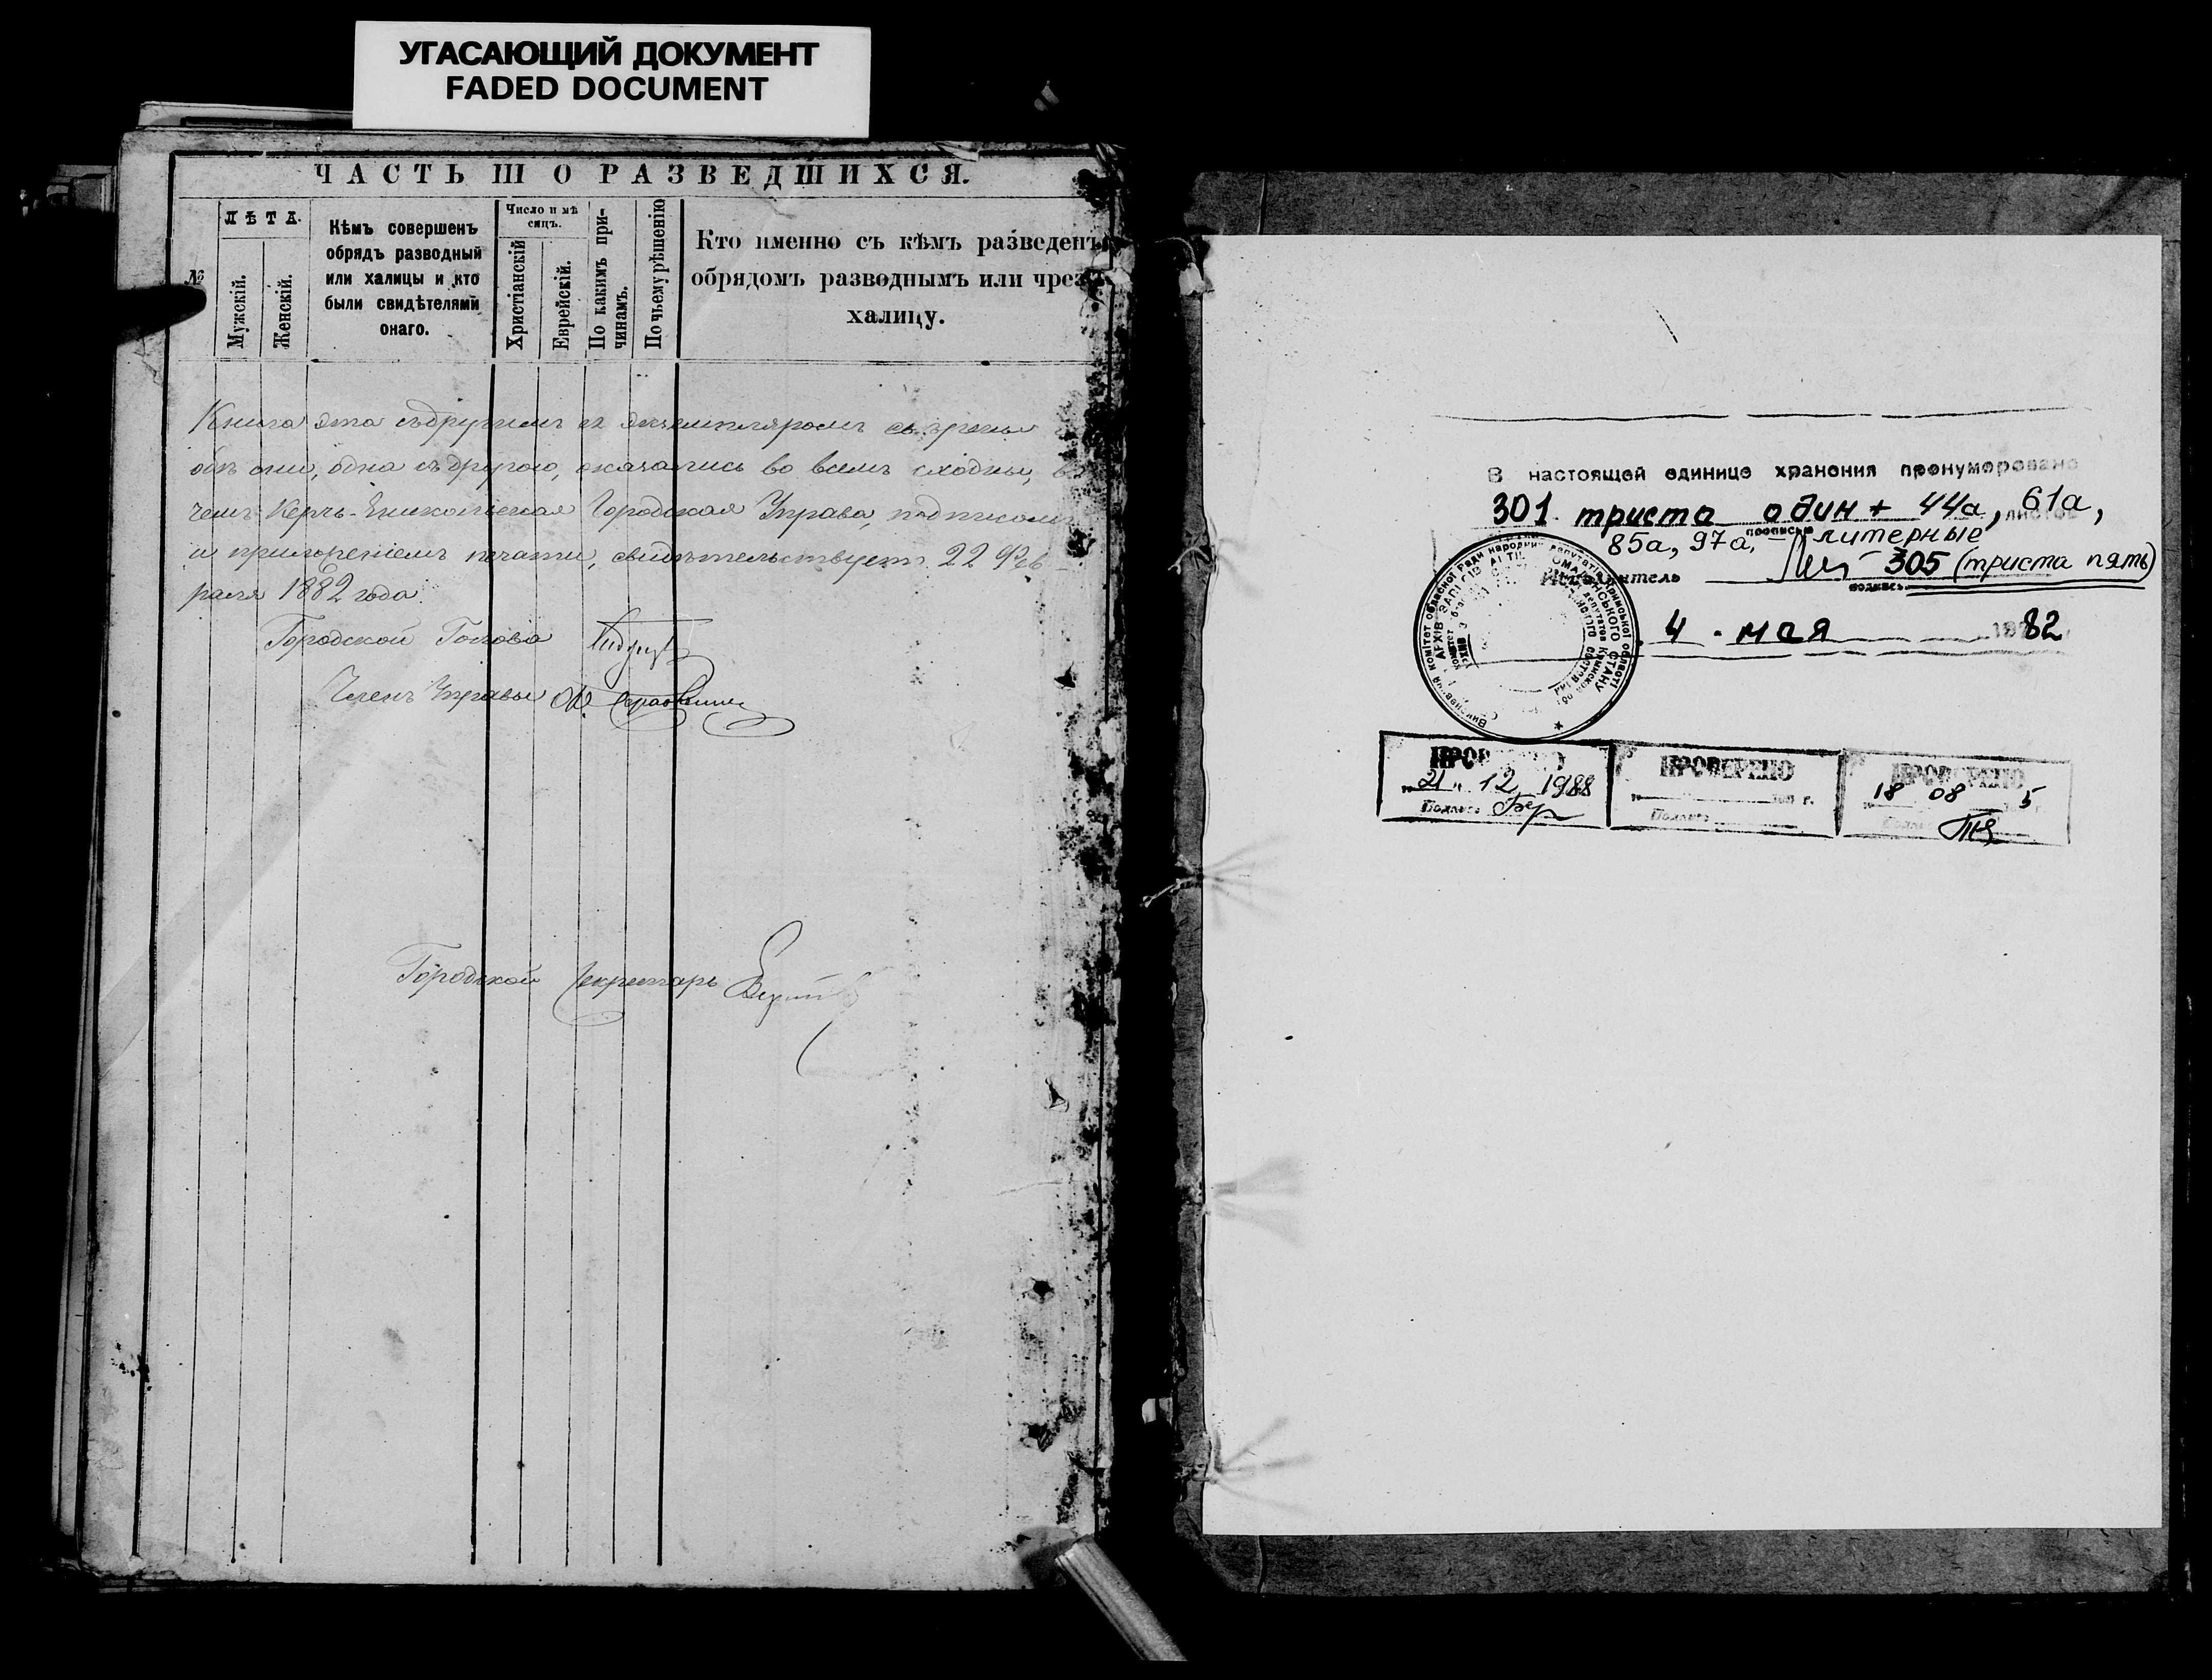 УГАСАЮЩИЙ ДОКУМЕНТ
FADED DOCUMENT
ЧАСТЬ III О РАЗВЕДШИХСЯ.
№
ЛѢТА.
Мужскій.
Женскій.
Кѣмъ совершенъ
обрядъ разводный
или халицы и кто
были свидѣтелями
онаго.
Число и мѣ
сяцъ.
Христіанскій
Еврейскій.
По какимъ при-
чинамъ.
По чьему рѣшенію
Кто именно съ кѣмъ разведенъ
обрядомъ разводнымъ или чрезъ
халицу.
Книга эта съ другимъ ея экземпляромъ
обѣ они, одна съ другою, оказались во всемъ сходны, въ
чемъ Керчь-Еникольская Городская Управа, подписомъ
и приложеніемъ печати, свидѣтельствуетъ. 22 Фев-
раля 1882 года.
Городской Голова
Членъ Управы
Городской Секретарь
В настоящей единице хранения пронумеровано
301 триста один + 44а, 61а, листов
прописью
85а, 97а, литерные
305 (триста пять)
подпись
4 мая 1982
ПРОВЕРЕНО
"21" 12 1988
Подпись
ПРОВЕРЕНО
г.
Подпись
ПРОВЕРЕНО
18 08 5 г.